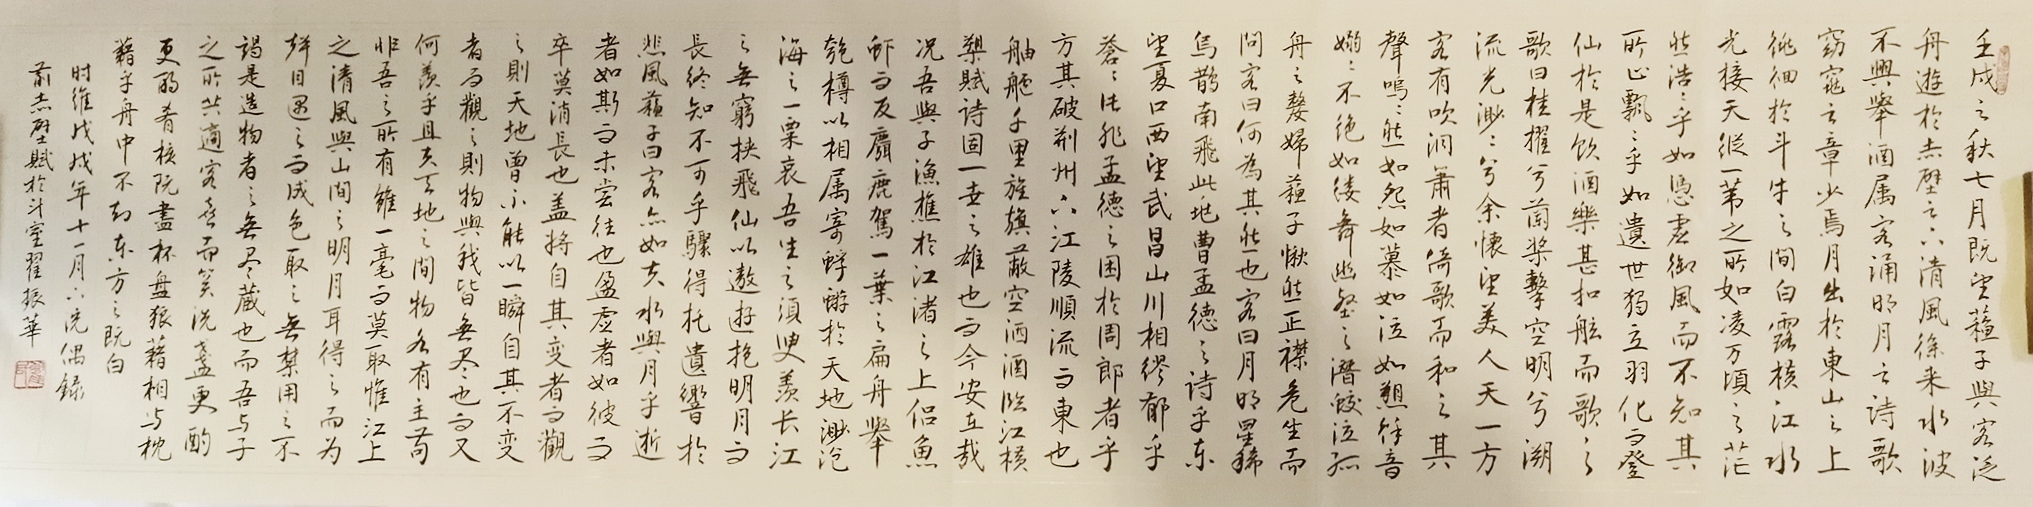 壬戌之秋七月既望蘓子與客泛
舟遊於赤壁之下清風徐来水波
不興舉酒属客诵明月之詩歌
窈窕之章少焉月出於東山之上
徘徊於斗牛之間白露横江水
光接天縱一苇之所如凌万頃之茫
然浩〻乎如馮虚御風而不知其
所止飄〻乎如遺世獨立羽化而登
仙於是饮酒樂甚扣舷而歌之
歌曰桂櫂兮蘭槳擊空明兮溯
流光渺〻兮余懷望美人天一方
客有吹洞萧者倚歌而和之其
聲嗚〻然如怨如慕如泣如愬餘音
嫋〻不绝如缕舞幽壑之潛蛟泣孤
舟之嫠婦蘓子愀然正襟危坐而
問客曰何為其然也客曰月明星稀
烏鹊南飛此非曹孟德之诗乎東
望夏口西望武昌山川相缪郁乎
蒼〻此非孟德之困於周郎者乎
方其破荆州下江陵順流而東也
舳艫千里旌旗蔽空酒酒臨江横
槊賦诗固一世之雄也而今安在哉
况吾與子漁樵於江渚之上侣魚
虾而友麋鹿駕一葉之扁舟舉
匏樽以相属寄蜉蝣於天地渺沧
海之一粟哀吾生之须臾羨长江
之無窮挟飛仙以遨遊抱明月而
長终知不可乎驟得托遺響於
悲風蘓子曰客亦如夫水與月乎逝
者如斯而未尝往也盈虚者如彼而
卒莫消長也盖将自其变者而觀
之則天地曾不能以一瞬自其不变
者而觀之則物與我皆無尽也而又
何羡乎且夫天地之間物各有主苟
非吾之所有雖一毫而莫取惟江上
之清風與山間之明月耳得之而为
聲目遇之而成色取之無禁用之不
竭是造物者之無尽蔵也而吾与子
之所共適客喜而笑洗盏更酌
更酌肴核既盡杯盘狼藉相与枕
藉乎舟中不知东方之既白
时維戊戌年十一月下浣偶録
前赤壁賦於斗室翟振華